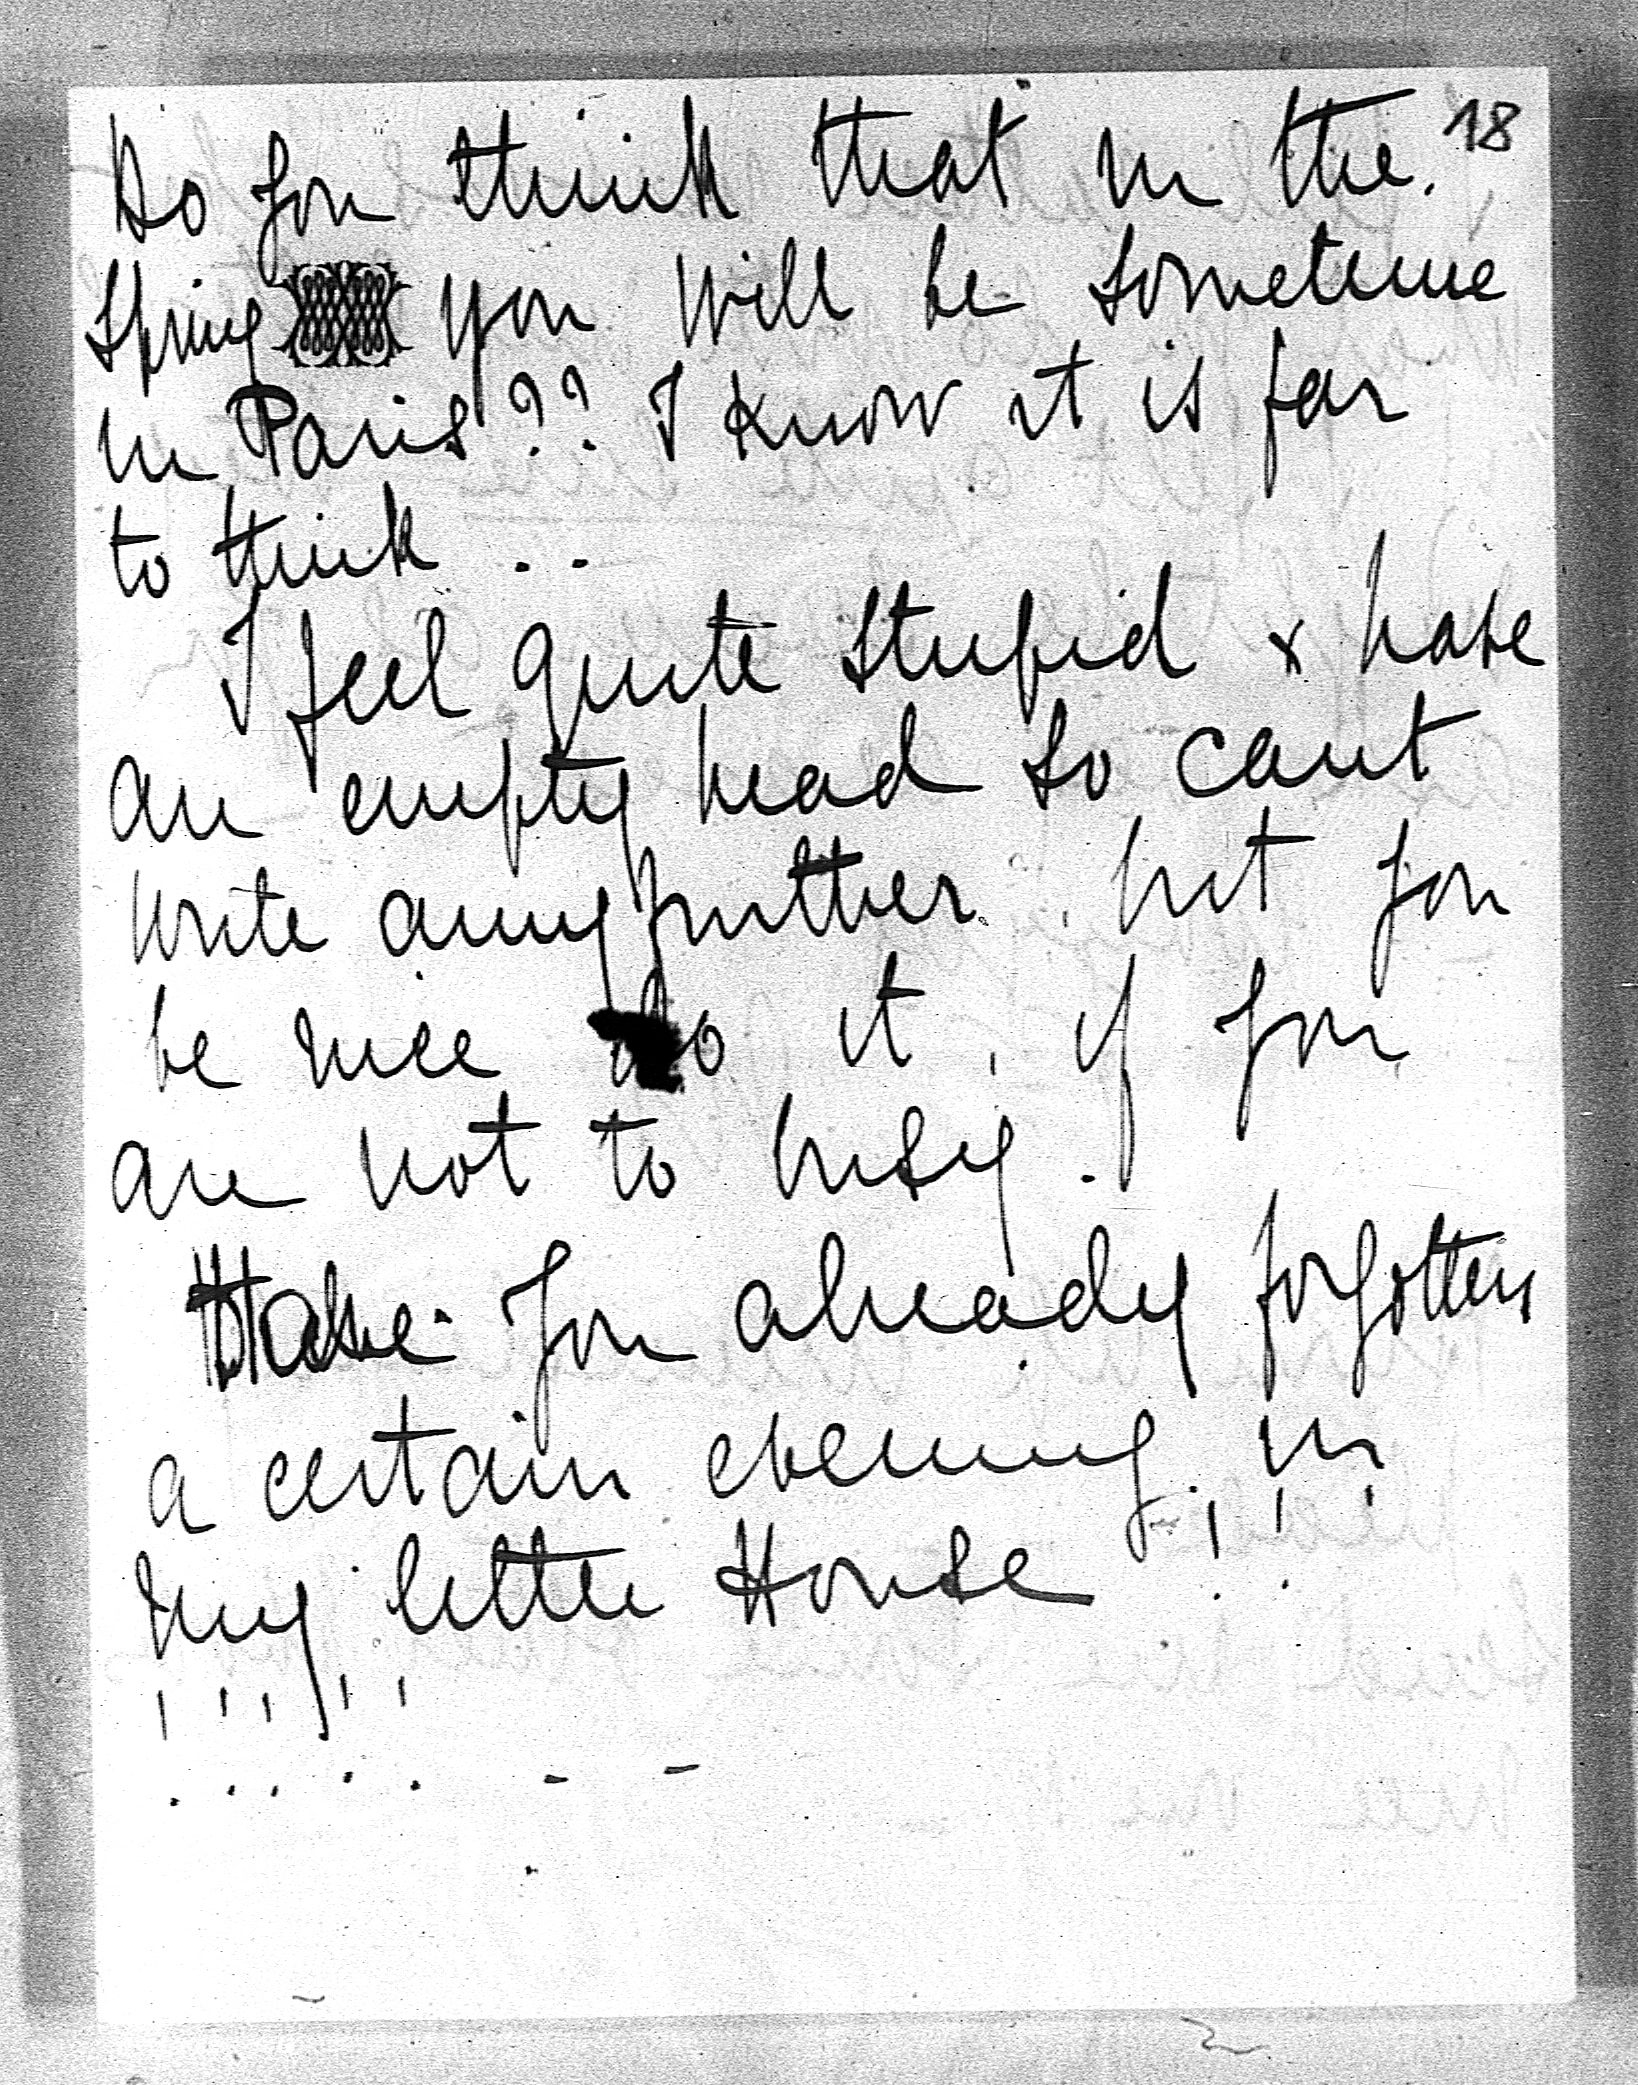 18
Do you think that in the.
spring you will be sometime
in Paris?? I know it is far
to think ..
I feel quite stupid & have
an empty head so cant
write anny further, but you
be nice do it, if you
are not to busy.
Have you already forgotten
a certain evening in
my little House !!!
!!!!!
..... - -